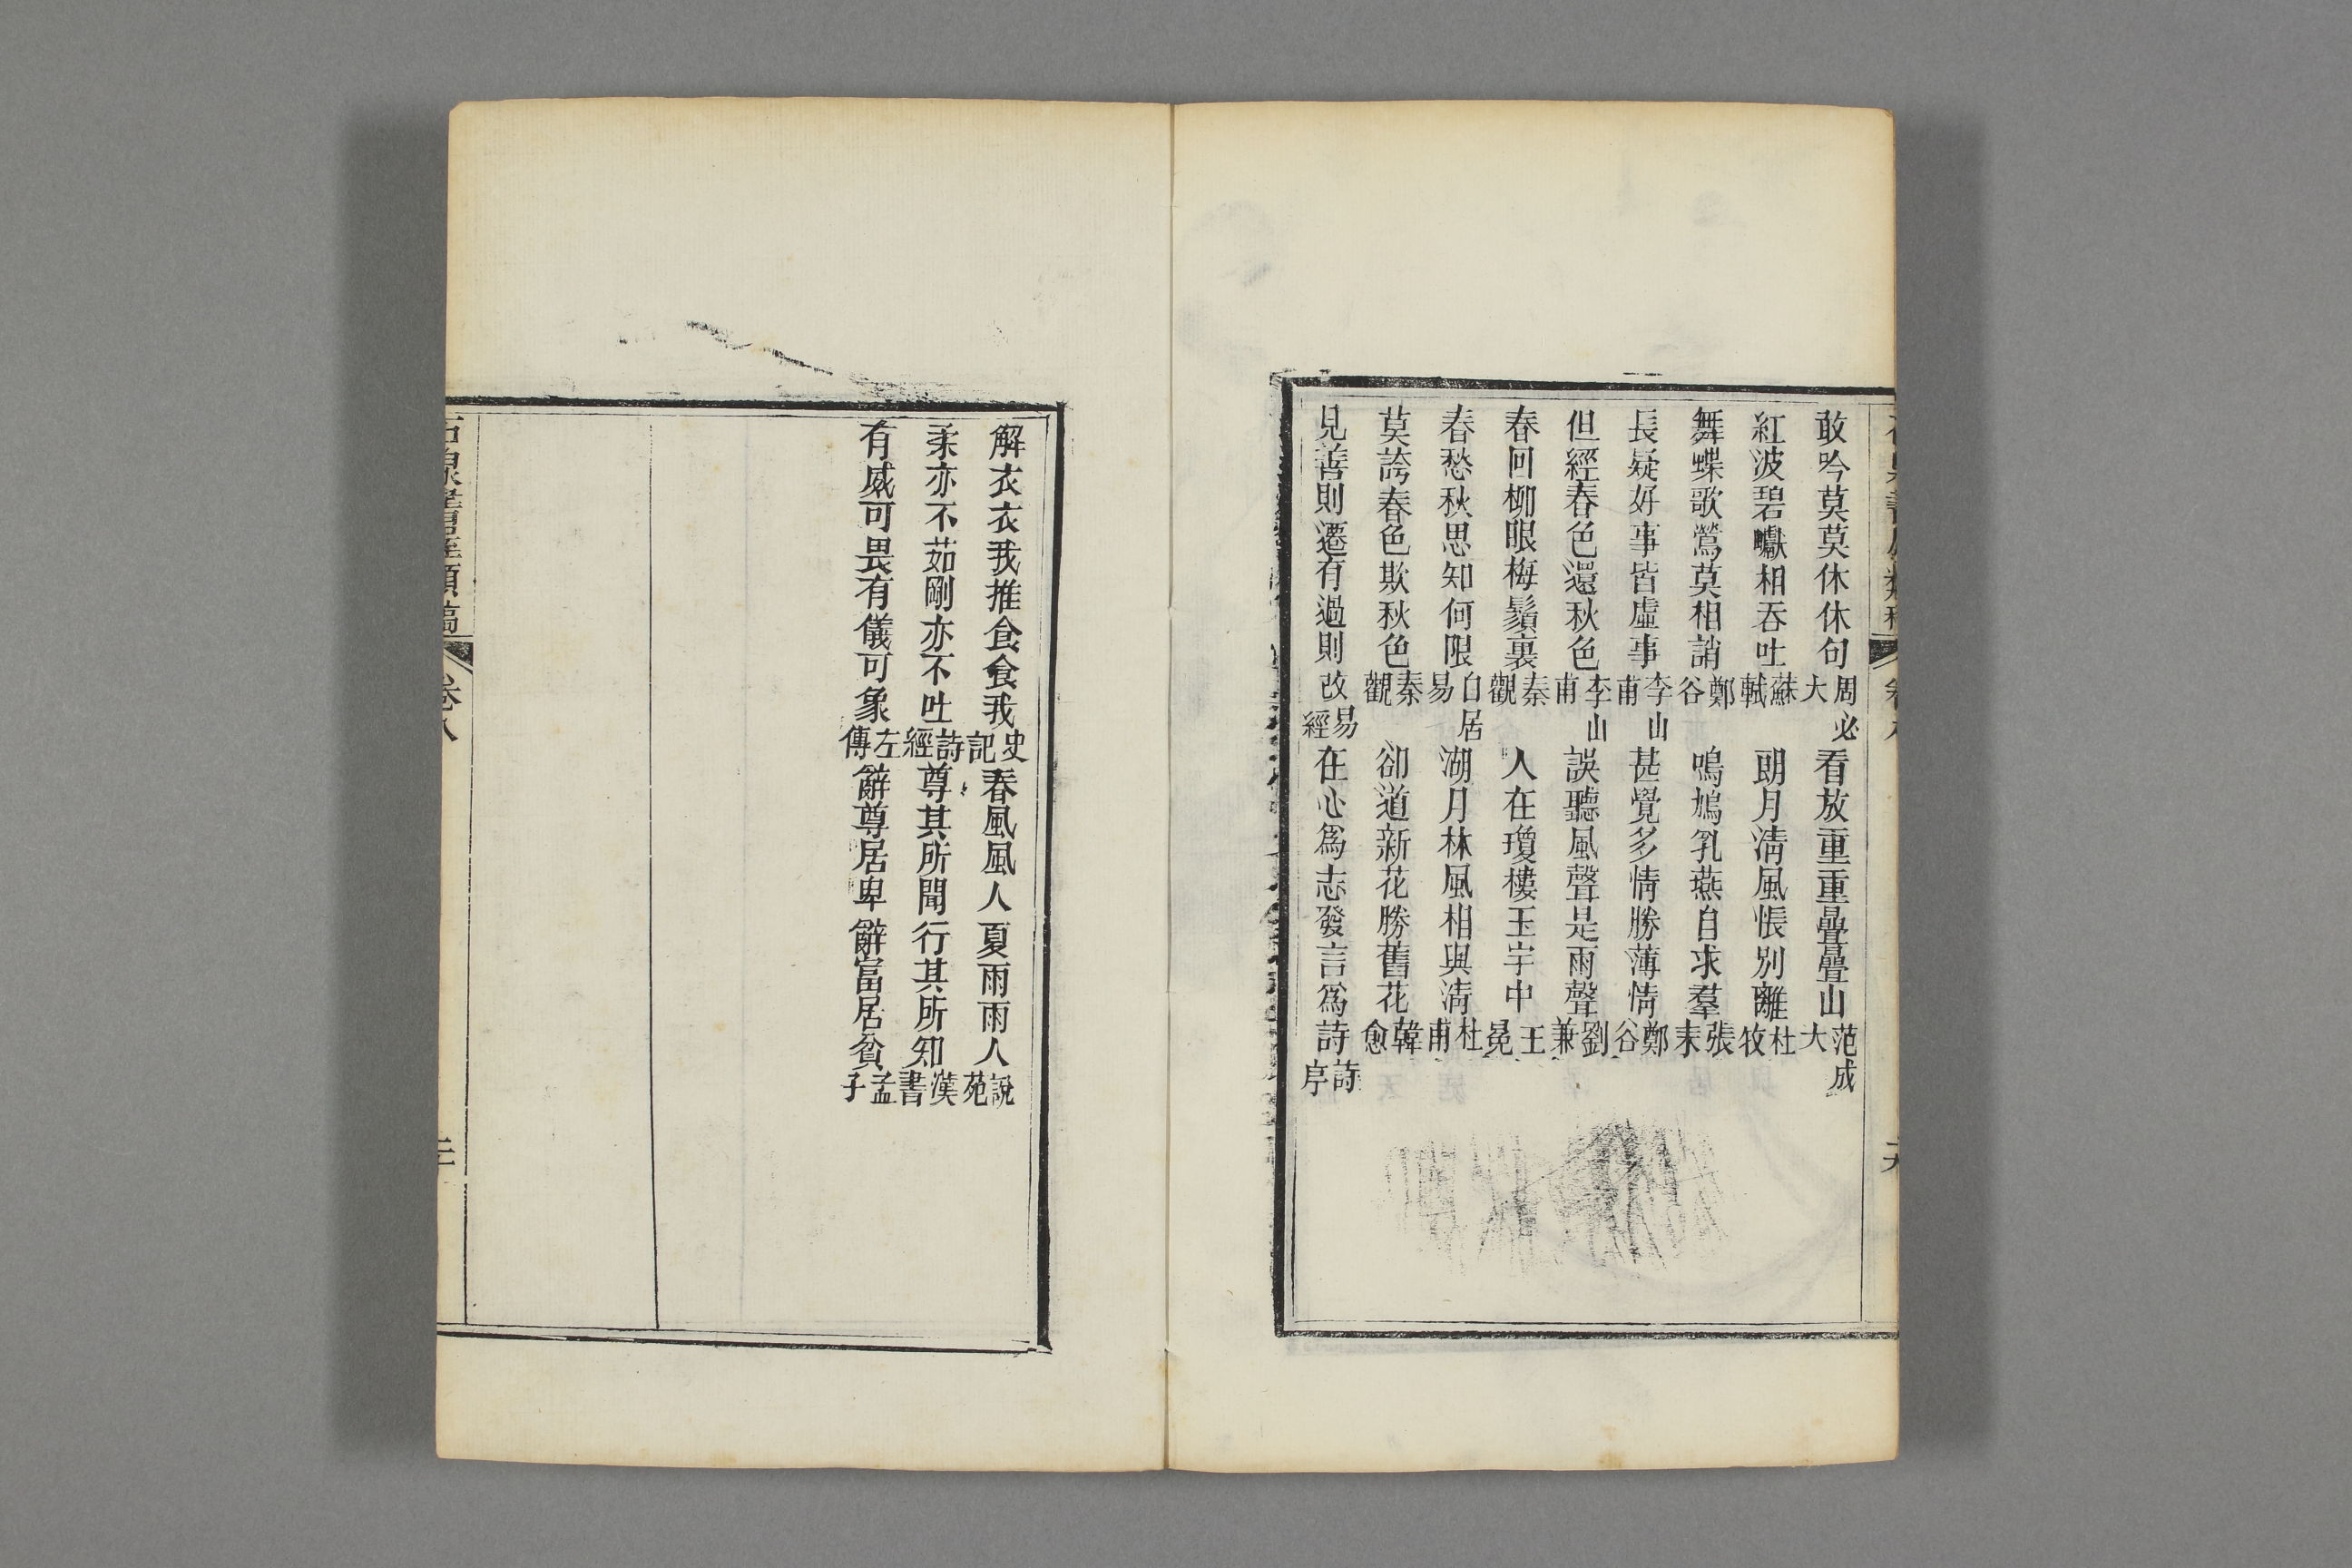 敢吟莫莫休休句周必大看放重重疊疊山范成大
紅波碧巘相吞吐蘇軾朗月清風悵別離杜牧
舞蝶歌鶯莫相誚鄭谷鳴鳩乳燕自求羣張耒
長疑好事皆虛事李山甫甚覺多情勝薄情鄭谷
但經春色還秋色李山甫誤聽風聲是雨聲劉兼
春回柳眼梅鬚裏秦觀人在瓊樓玉宇中王冕
春愁秋思知何限白居易湖月林風相與清杜甫
莫誇春色欺秋色秦觀卻道新花勝舊花韓愈
見善則遷有過則改易經在心爲志發言爲詩詩序
解衣衣我推食食我史記春風風人夏雨雨人說苑
柔亦不茹剛亦不吐詩經尊其所聞行其所知漢書
有威可畏有儀可象左傳辭尊居卑辭富居貧孟子
卷八